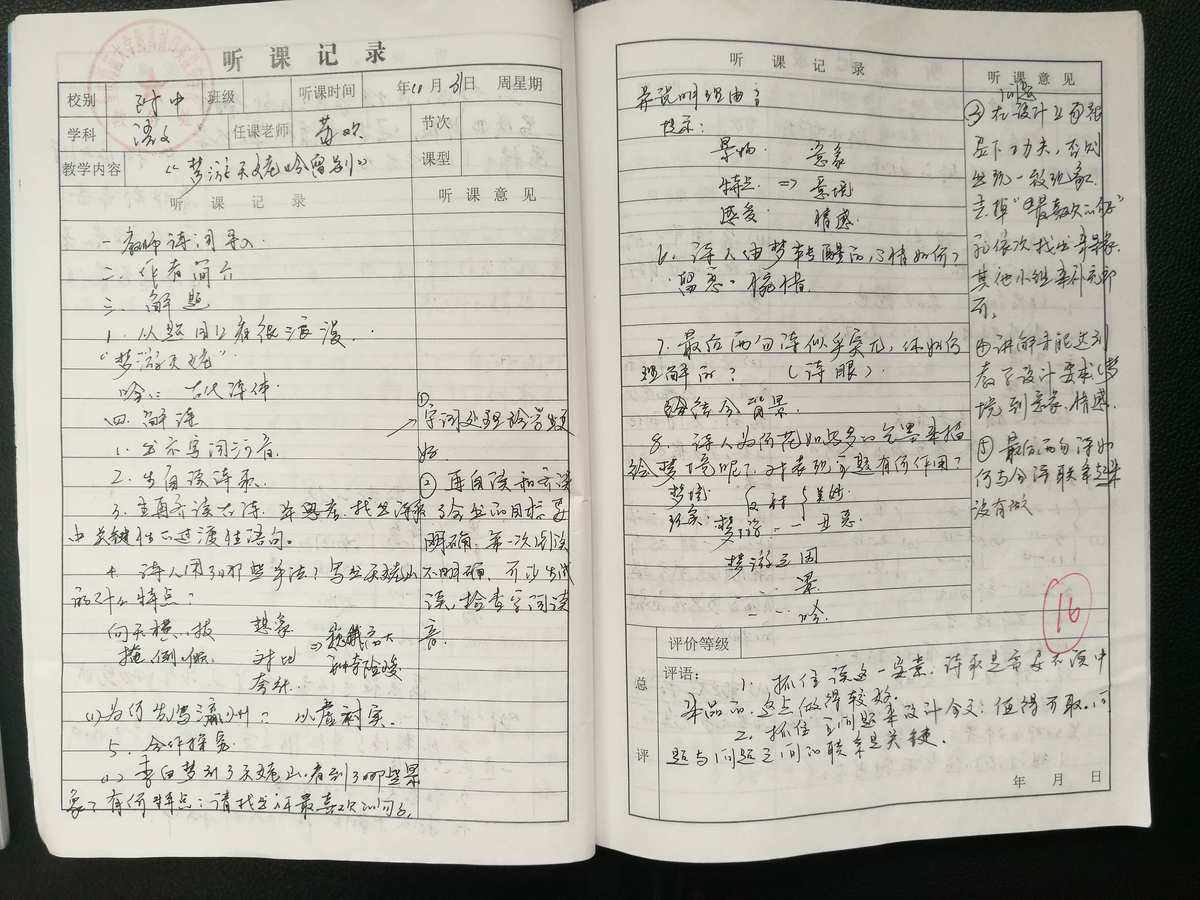 听课记录
校别 附中 班级 听课时间 年11月31日 周星期
学科 语文 任课老师 苏欢 节次
教学内容 《梦游天姥吟留别》 课型
听课记录 听课意见
一. 教师诗词导入.
二. 作者简介
三. 解题
1. 从题目上看很浪漫.
"梦游天姥"
吟: 古代诗体
四. 解读
1. 出示写词注音.
2. 生自读诗歌.
3. 生再齐读古诗. 并思考. 找出诗歌
中关键性的过渡性语句。
4. 诗人用了哪些手法? 写出天姥山
的什么特点?
向天横, 拔 想象
掩, 倒, 倾 对比 高大
夸张.
(1) 为何先写瀛洲? 以虚衬实.
5. 合作探究
(1) 李白梦到了天姥山. 看到了哪些景
象? 有何特点? 请找出你最喜欢的句子,
①
字词处理
好.
② 再自读和齐读
了会出的目标要
明确. 第一次朗读
不明确, 可少生试
读, 检查字词读
音.
听课记录
并说明理由?
提示:
景物. 意象
特点. => 意境
感受. 情感.
6. 诗人由梦转醒的心情如何?
留恋. 惋惜.
7. 最后两句诗似乎突兀, 你如何
理解的? (诗眼).
结合背景.
8. 诗人为何花如此多的笔墨来描
绘梦境呢? 对表现主题有何作用?
梦境: 反衬
现实: 丑恶.
梦游之因
梦.
吟.
听课意见
问题
③ 在设计上自己
足下功夫, 否则
出现一致现象.
去掉"你最喜欢的句子"
和依次找出景象.
其他小组来补充即
可.
④ 讲解手能达到
教学设计要求 (梦
境到意象, 情感.
⑤ 最后两句诗如
何与全诗联系起来
没有做
16
评价等级
总评
评语: 1. 抓住读这一要素. 诗歌是需要在读中
来品的. 这点做得较好.
2. 抓住主问题来设计全文: 值得可取. 问
题与问题之间的联系是关键.
年 月 日